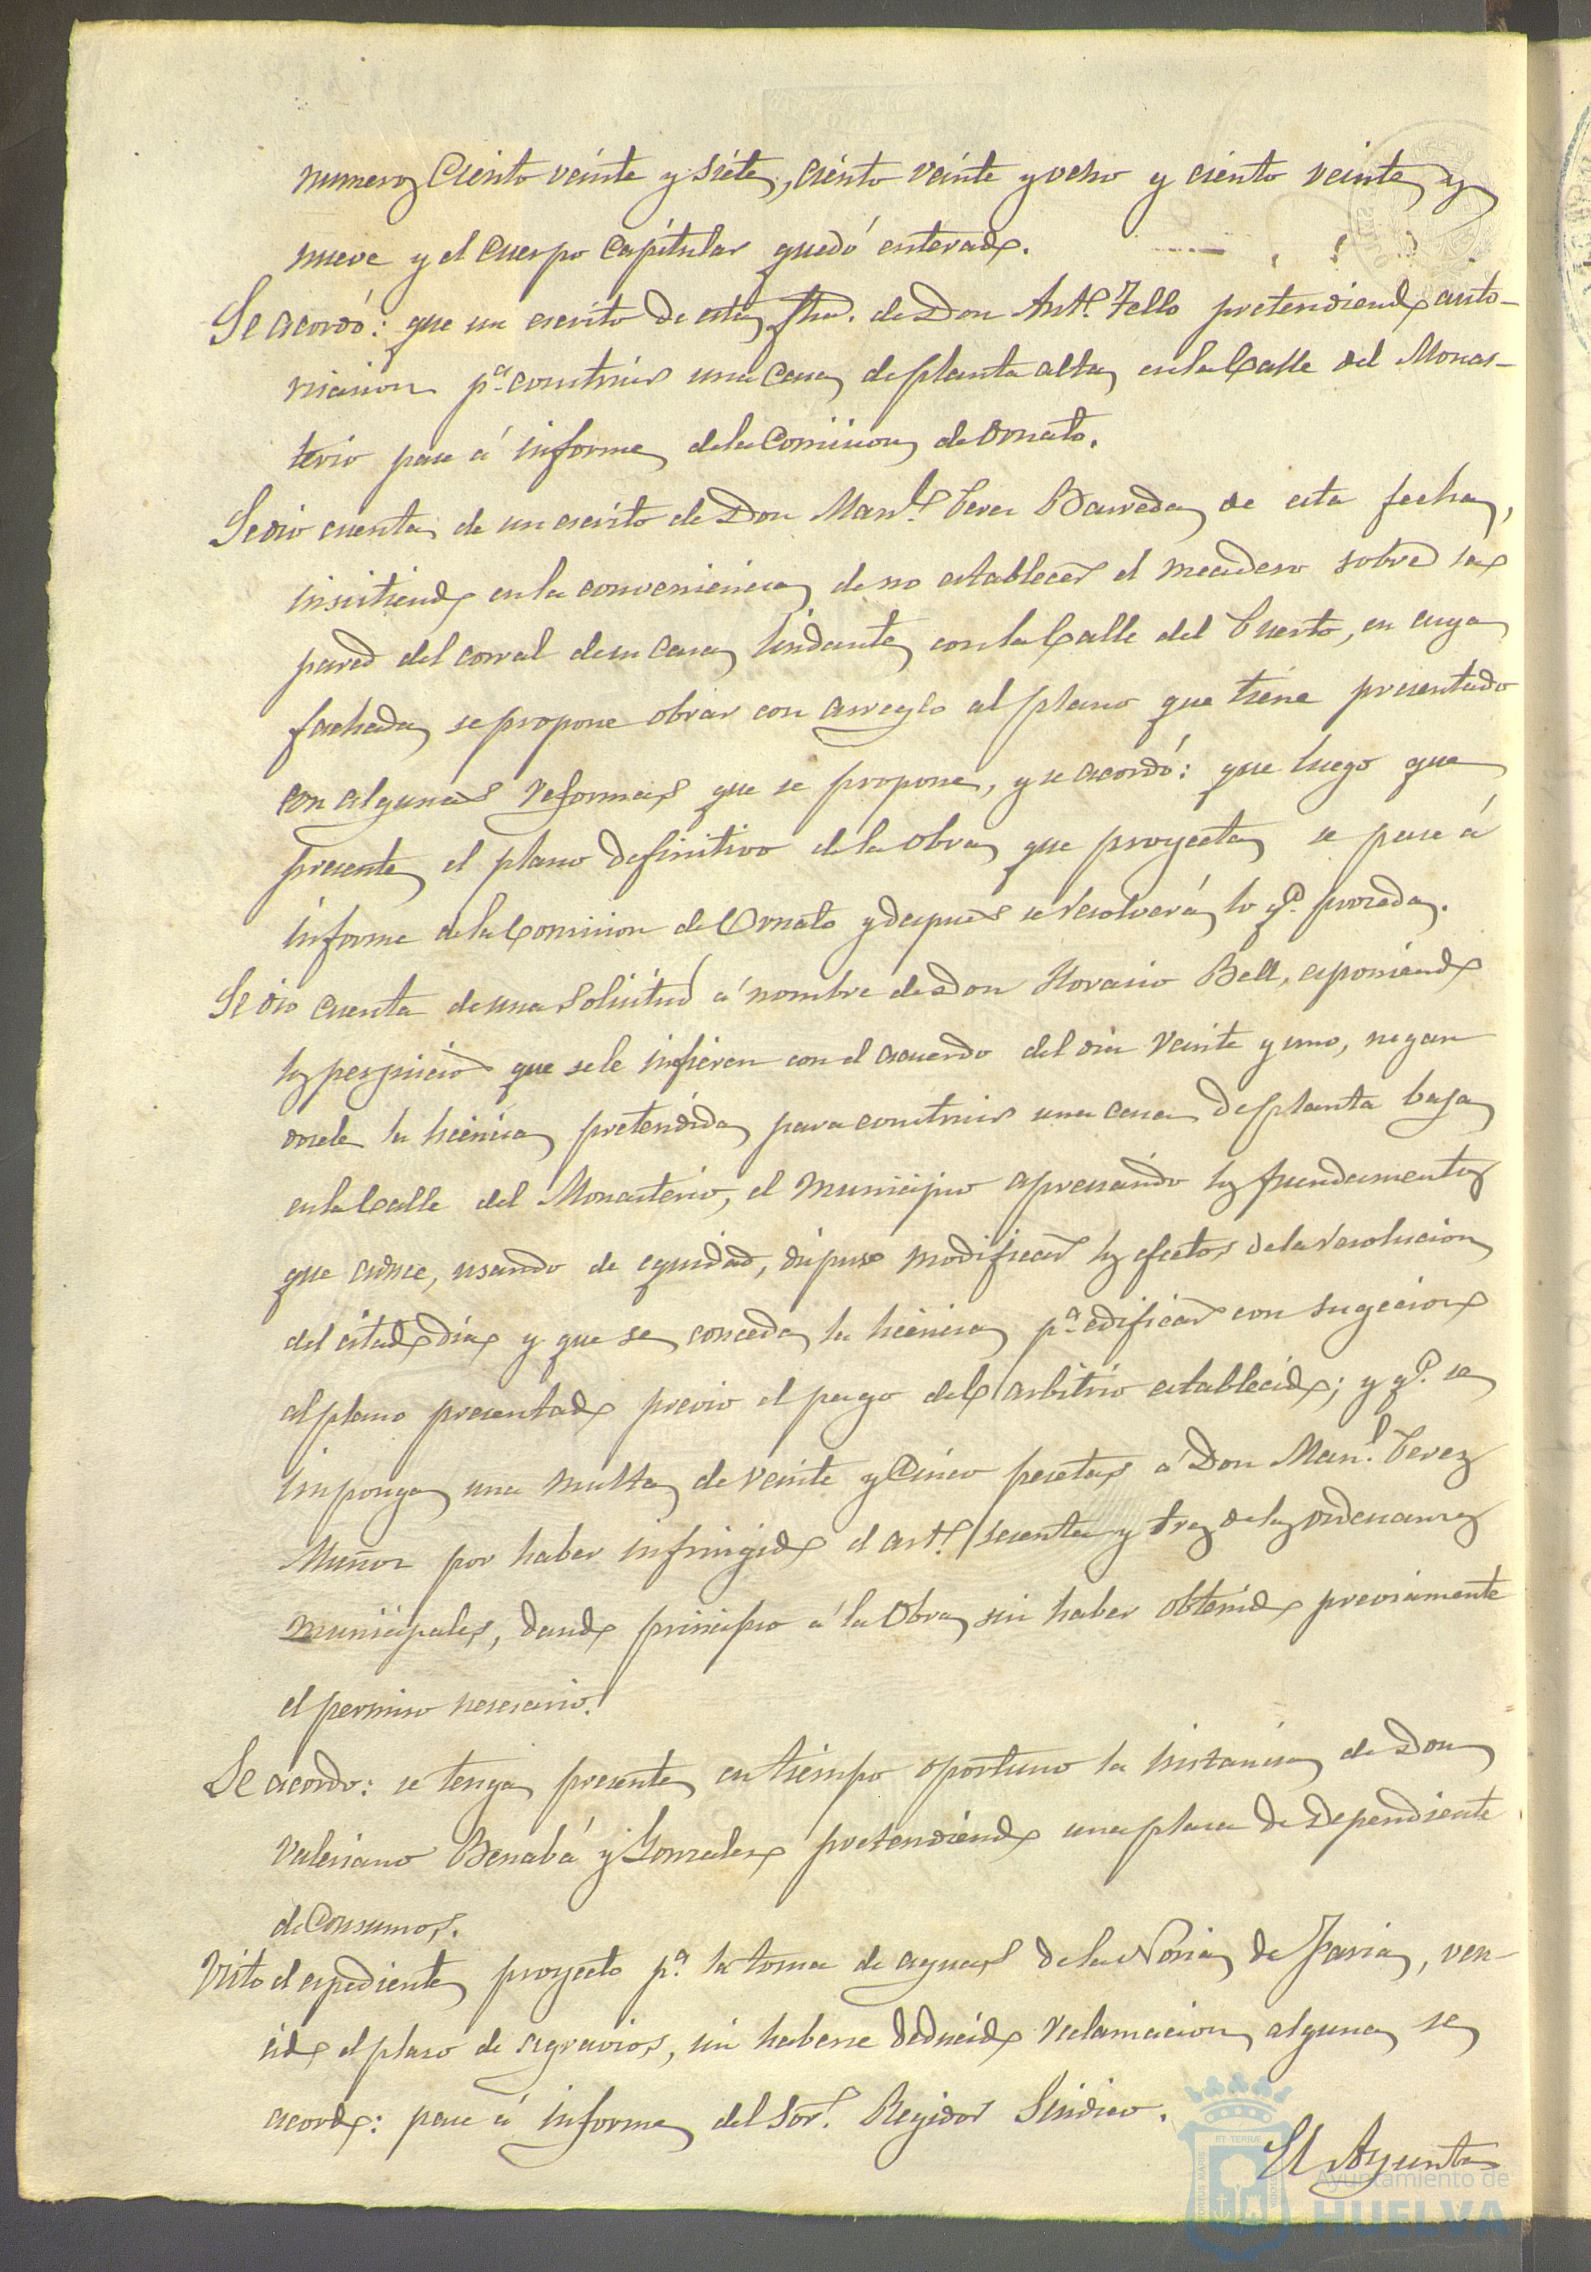 numeros Ciento veinte y siete, ciento veinte y ocho y ciento veinte y
nueve y el Cuerpo Capitular quedó enterado.
Se acordó: que un escrito de esta fha. de Don Antº. Tello pretendiendo auto-
rizacion pª. construir una Casa de planta alta en la Calle del Monas-
terio pase á informe de la Comision de Ornato.
Se dio cuenta de un escrito de Don Manl. Perez Barreda de esta fecha,
insistiendo en la conveniencia de no establecer el meadero sobre la
pared del corral de su Casa lindante con la Calle del Puerto, en cuya
fachada se propone obrar con arreglo al plano que tiene presentado
con algunas reformas que se propone, y se acordó: que luego que
presente el plano definitivo de la obra que proyecta se pase á
informe de la Comision de Ornato y despues se resolverá lo qe. proceda.
Se dio cuenta de una Solicitud á nombre de Don Horacio Bell, esponiendo
los perjuicios que se le infieren con el acuerdo del dia veinte y uno, negan
dosele la licencia pretendida para construir una casa de planta baja
en la Calle del Monasterio, el Municipio apreciando los fundamentos
que aduce, usando de equidad, dispuso modificar los efectos de la resolucion
del citado dia y que se conceda la licencia pª. edificar con sugecion
al plano presentado previo el pago del arbitrio establecido; y qe. se
imponga una multa de veinte y Cinco pesetas á Don Manl. Perez
Muñoz por haber infringido el artº. sesenta y tres de las ordenanzas
municipales, dando principio á la Obra sin haber obtenido previamente
el permiso nesesario.
Se acordo: se tenga presente en tiempo oportuno la instancia de Don
Valeriano Benabá y Gonzalez pretendiendo una plaza de Dependiente
de Consumos.
Visto el espediente proyecto pª. la toma de aguas de la Noria de Faria, ven-
cido el plazo de agravios, sin haberse deducido reclamacion alguna se
acordo: pase á informe del Sor. Regidor Sindico.
El Ayunta
Ayuntamiento de
HUELVA